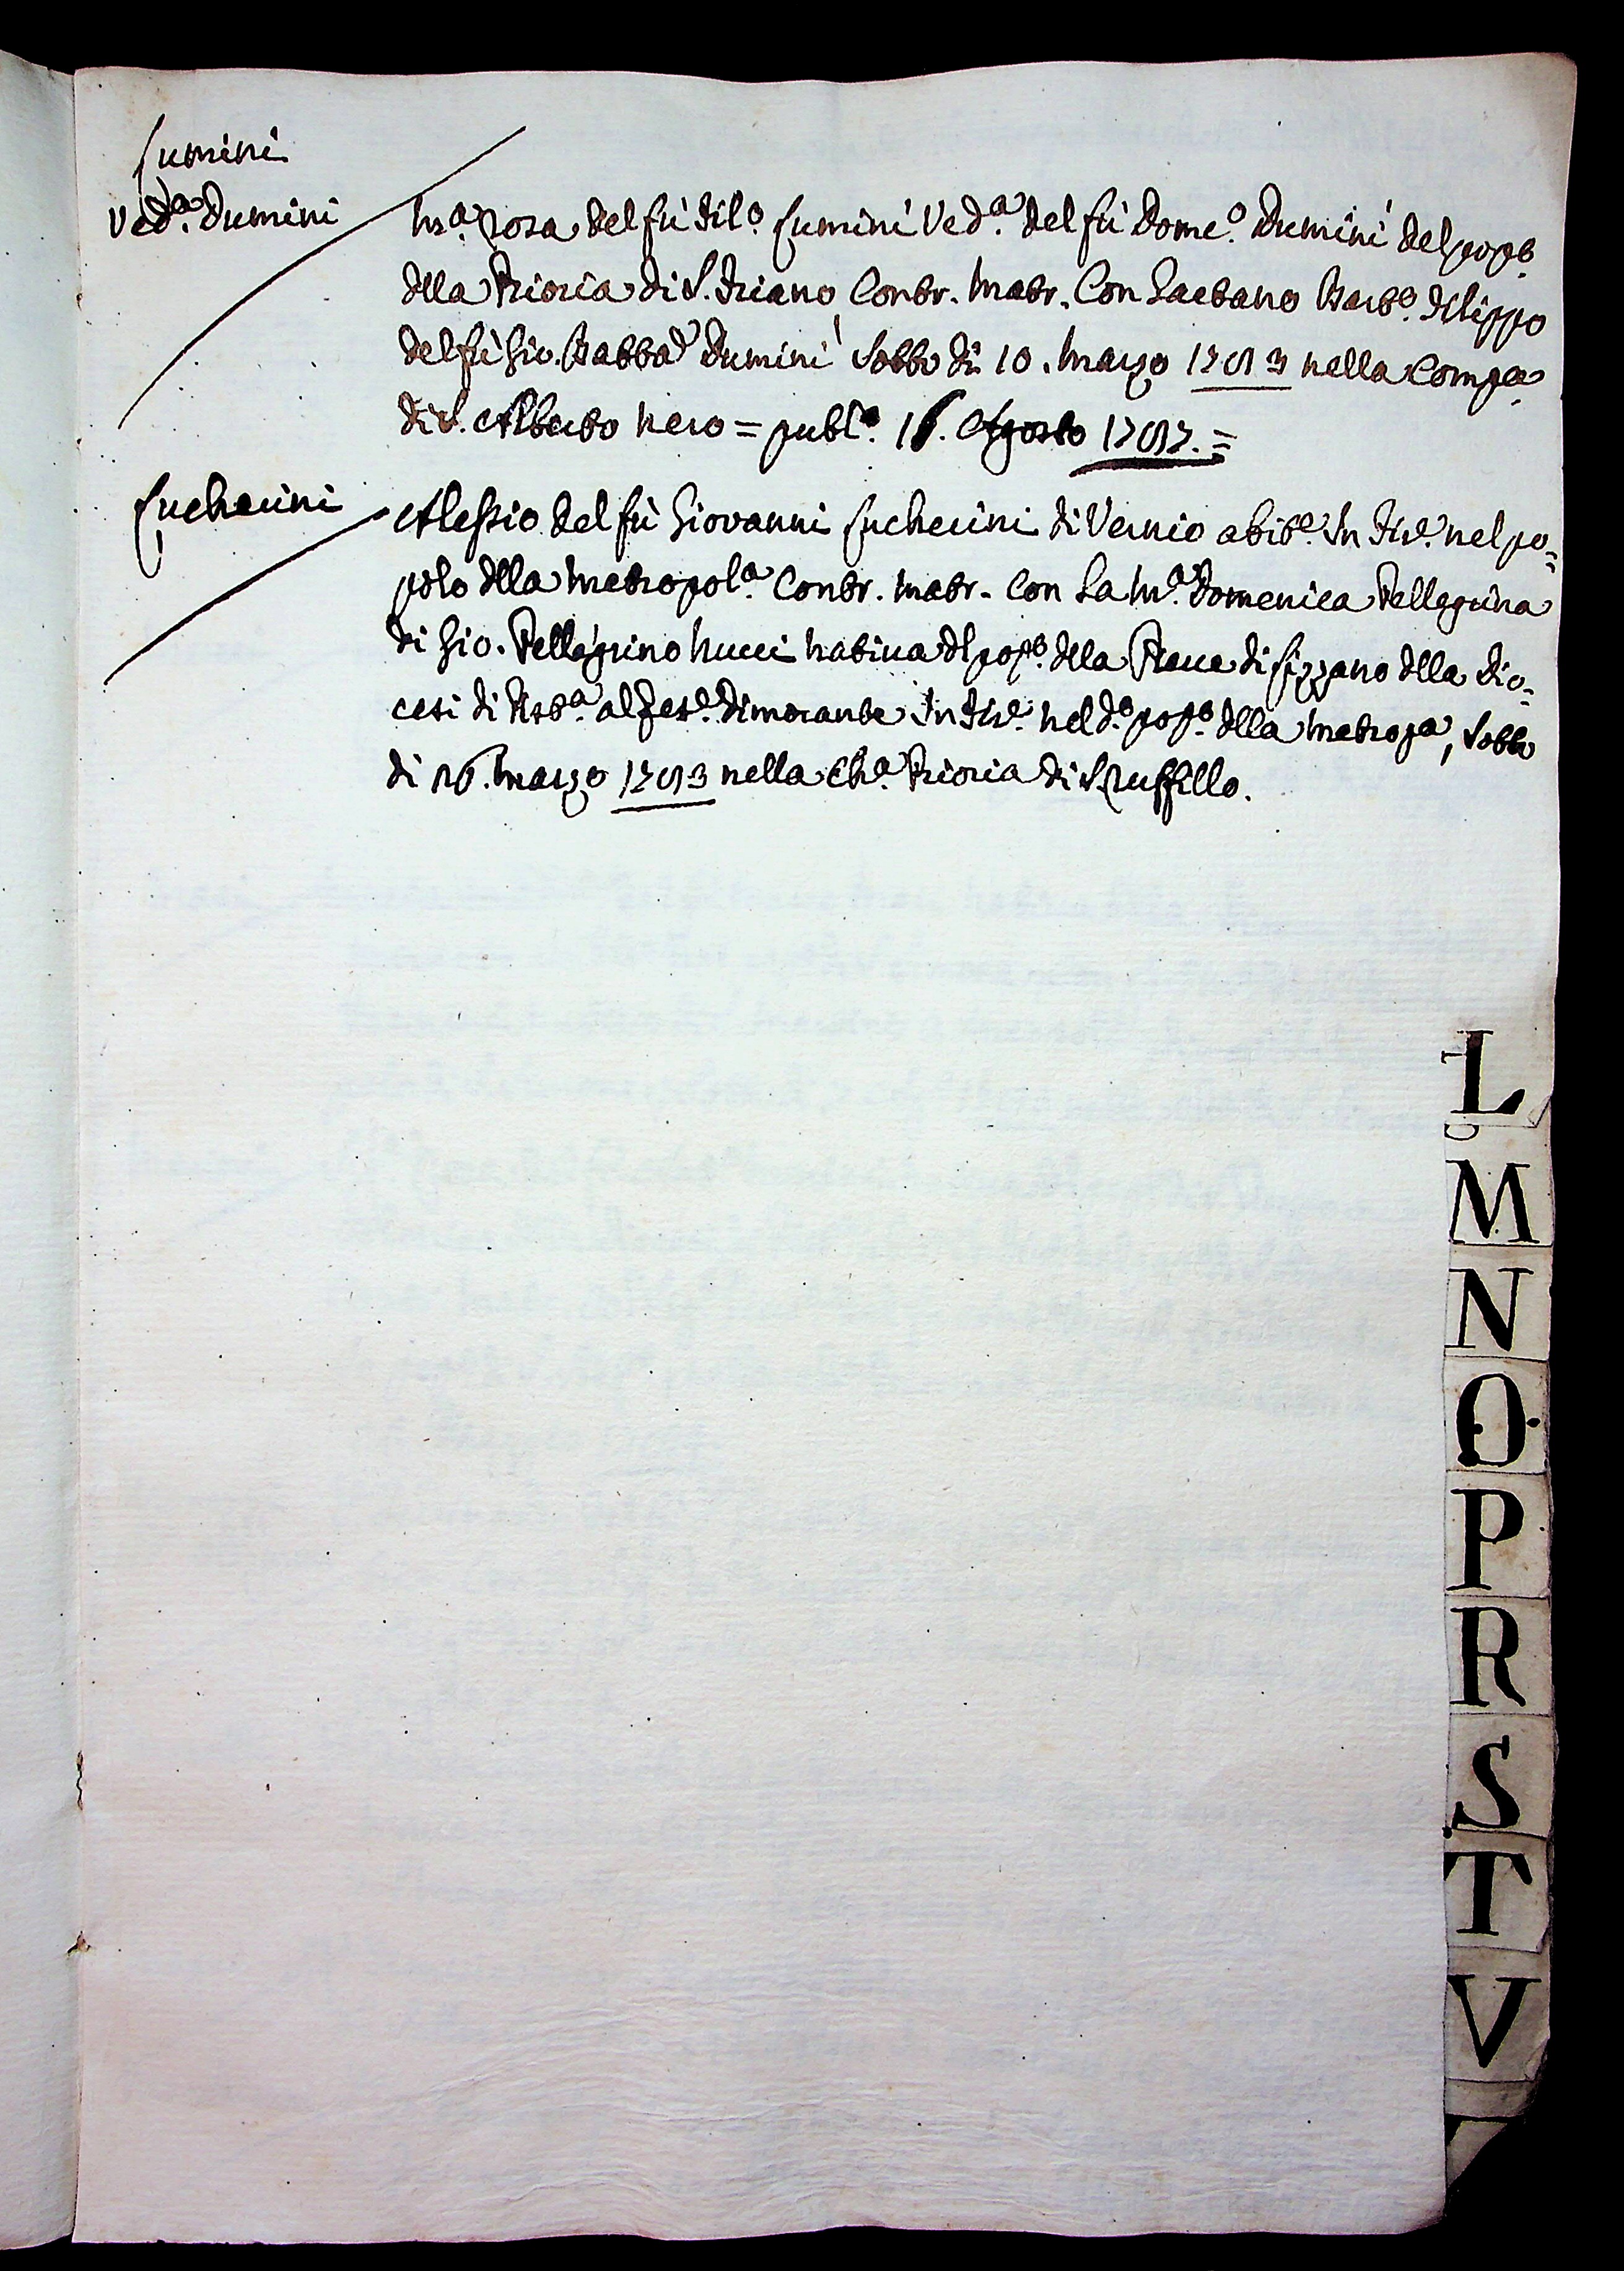 Lumini
Ved.a Dumini
M.a Rosa del fù Fil.o Lumini Ved.a del fù Dome.o Dumini del popo
della Prioria di S. Friano Contr. Matr. Con Gaetano Filippo
del fù Gio. Batta Dumini Sotto dì 10. Marzo 1793 nella Compa
di S. Alberto Nero = publ.o Agosto 1797. =
Lucherini
Alessio del fù Giovanni Lucherini di Vernio abit.e In Fir.e nel po=
polo della Metropol.a Contr. Matr. Con La M.a Domenica Pellegrina
di Gio. Pellegrino Nucci Nativa del popo. della Pieve di Lizzano della Dio=
cesi di Pist.a al pres.e dimorante In Fir.e nel d.o pop.o della Metropa, Sotto
di Marzo 1793 nella Ch.a Prioria di S. Ruffillo.
L
M
N
O
P
R
S
T
V